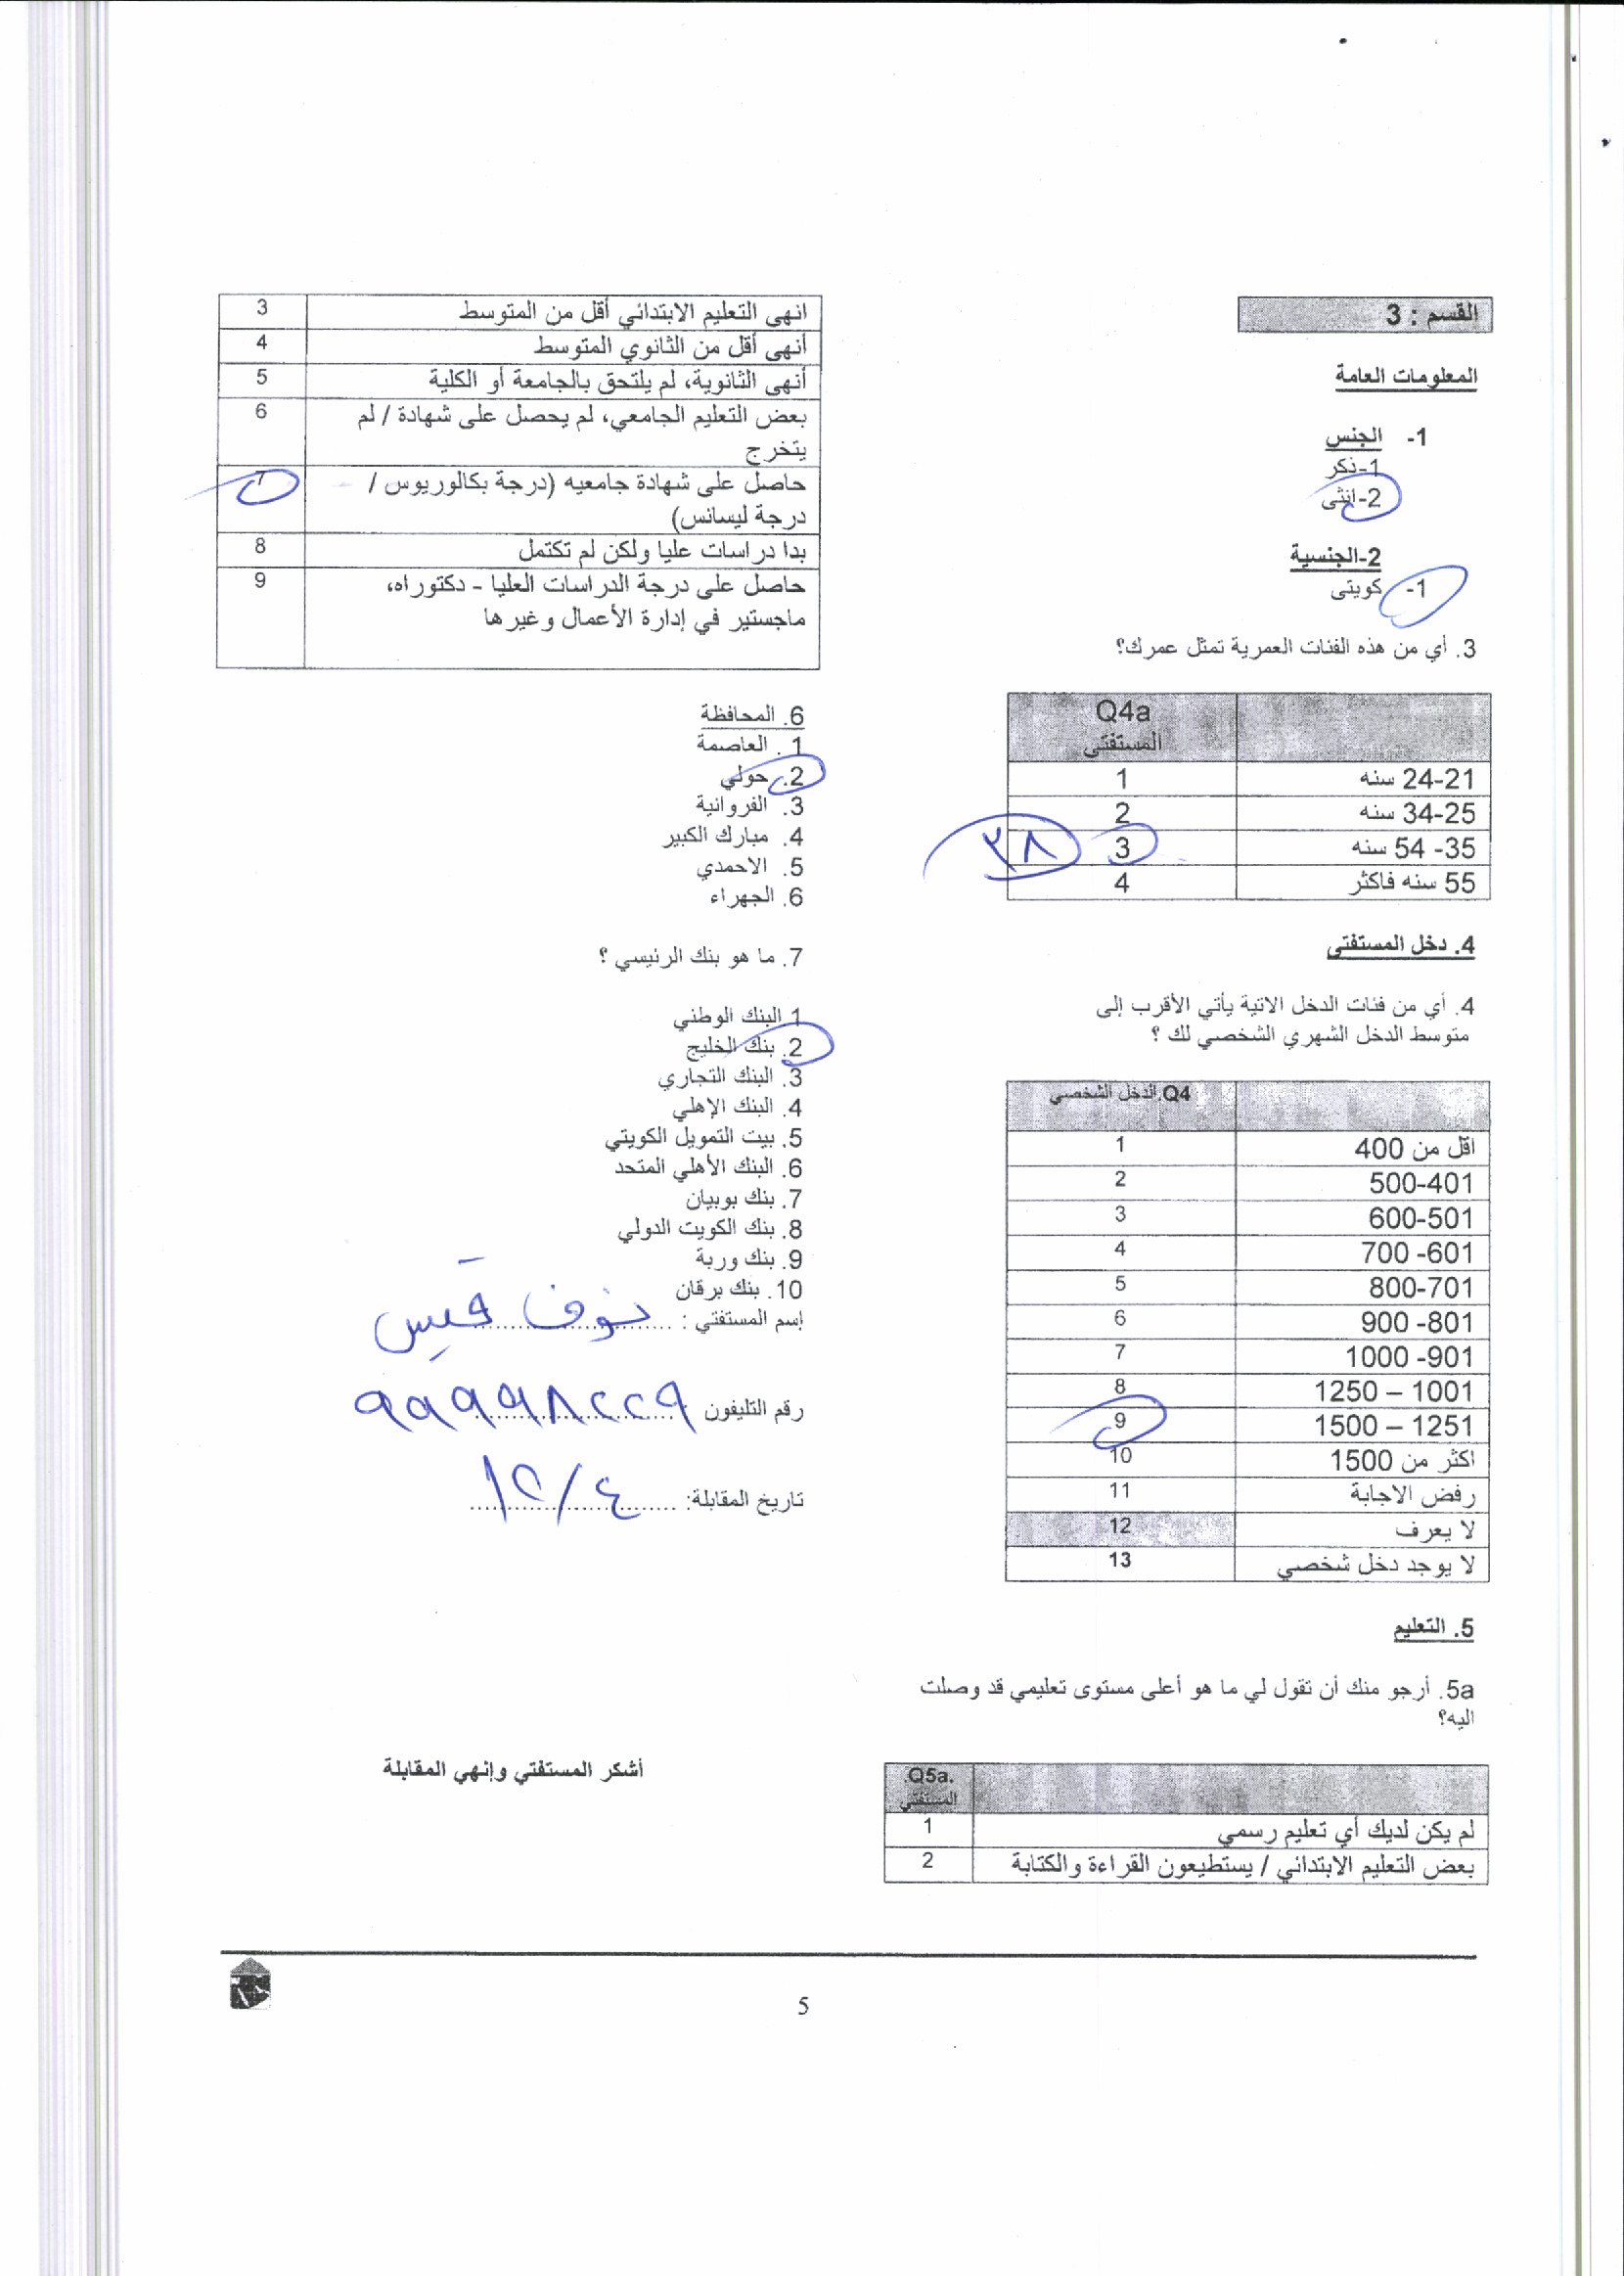 القسم : 3
المعلومات العامة
1- الجنس
1-ذكر
2-انثى
2-الجنسية
1- كويتى
3. أي من هذه الفئات العمرية تمثل عمرك؟
Q4a
المستفتى
24-21 سنه 1
34-25 سنه 2
35- 54 سنه 3 ٣٨
55 سنه فاكثر 4
4. دخل المستفتى
4. أي من فئات الدخل الاتية يأتي الأقرب إلى
متوسط الدخل الشهري الشخصي لك ؟
Q4.الدخل الشخصي
اقل من 400 1
500-401 2
600-501 3
700 -601 4
800-701 5
900 -801 6
1000 -901 7
1250 – 1001 8
1500 – 1251 9
اكثر من 1500 10
رفض الاجابة 11
لا يعرف 12
لا يوجد دخل شخصي 13
5. التعليم
5a. أرجو منك أن تقول لي ما هو أعلى مستوى تعليمي قد وصلت
اليه؟
Q5a.
المستفتي
لم يكن لديك أي تعليم رسمي 1
بعض التعليم الابتدائي / يستطيعون القراءة والكتابة 2
انهى التعليم الابتدائي أقل من المتوسط 3
أنهى أقل من الثانوي المتوسط 4
أنهى الثانوية، لم يلتحق بالجامعة أو الكلية 5
بعض التعليم الجامعي، لم يحصل على شهادة / لم 6
يتخرج
حاصل على شهادة جامعيه (درجة بكالوريوس / 7
درجة ليسانس)
بدا دراسات عليا ولكن لم تكتمل 8
حاصل على درجة الدراسات العليا - دكتوراه، 9
ماجستير في إدارة الأعمال وغيرها
6. المحافظة
1 . العاصمة
2. حولي
3. الفروانية
4. مبارك الكبير
5. الاحمدي
6. الجهراء
7. ما هو بنك الرئيسي ؟
1 البنك الوطني
2. بنك الخليج
3. البنك التجاري
4. البنك الإهلي
5. بيت التمويل الكويتي
6. البنك الأهلي المتحد
7. بنك بوبيان
8. بنك الكويت الدولي
9. بنك وربة
10. بنك برقان
إسم المستفتي : نوف قيس
رقم التليفون ٩٩٩٩٨٢٢٩
تاريخ المقابلة: ١٢/٤
أشكر المستفتي وإنهي المقابلة
5